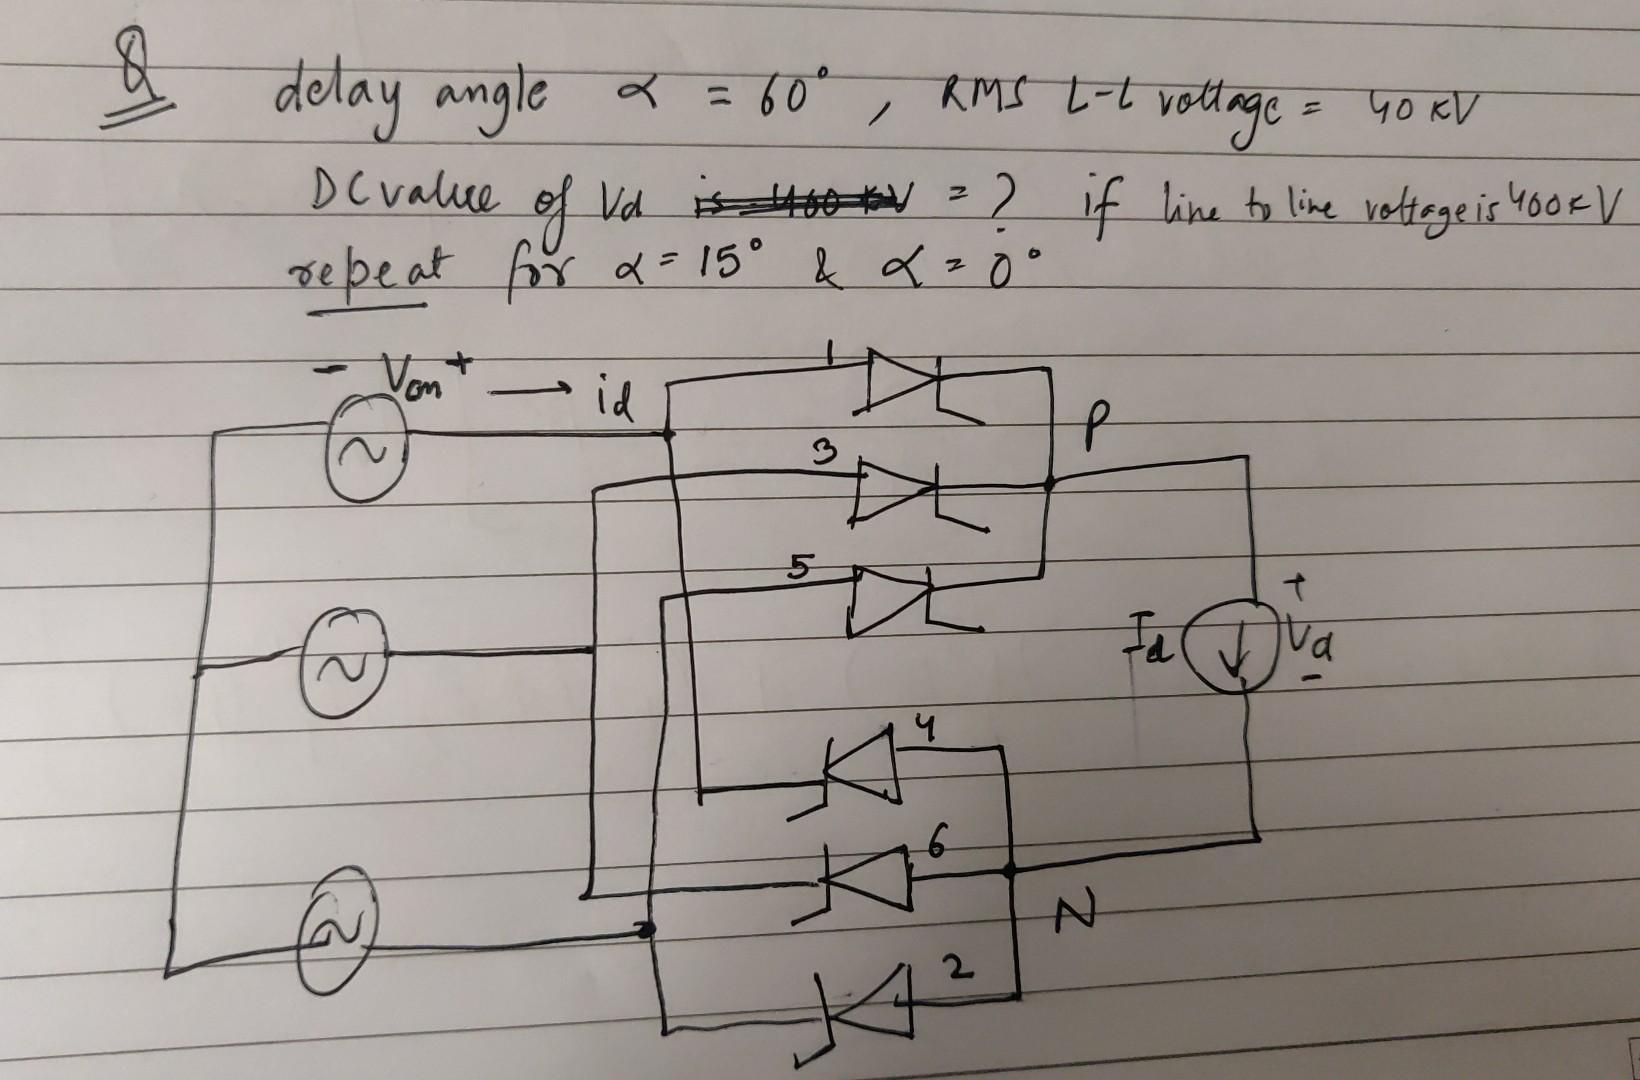 Q delay angle α = 60°, RMS L-L voltage = 40 KV
DC value of Vd = ? if line to line voltage is 400KV
repeat for α = 15° & α = 0°
- Van + → id
1
P
3
5
+
Id Vd
-
4
6
N
2